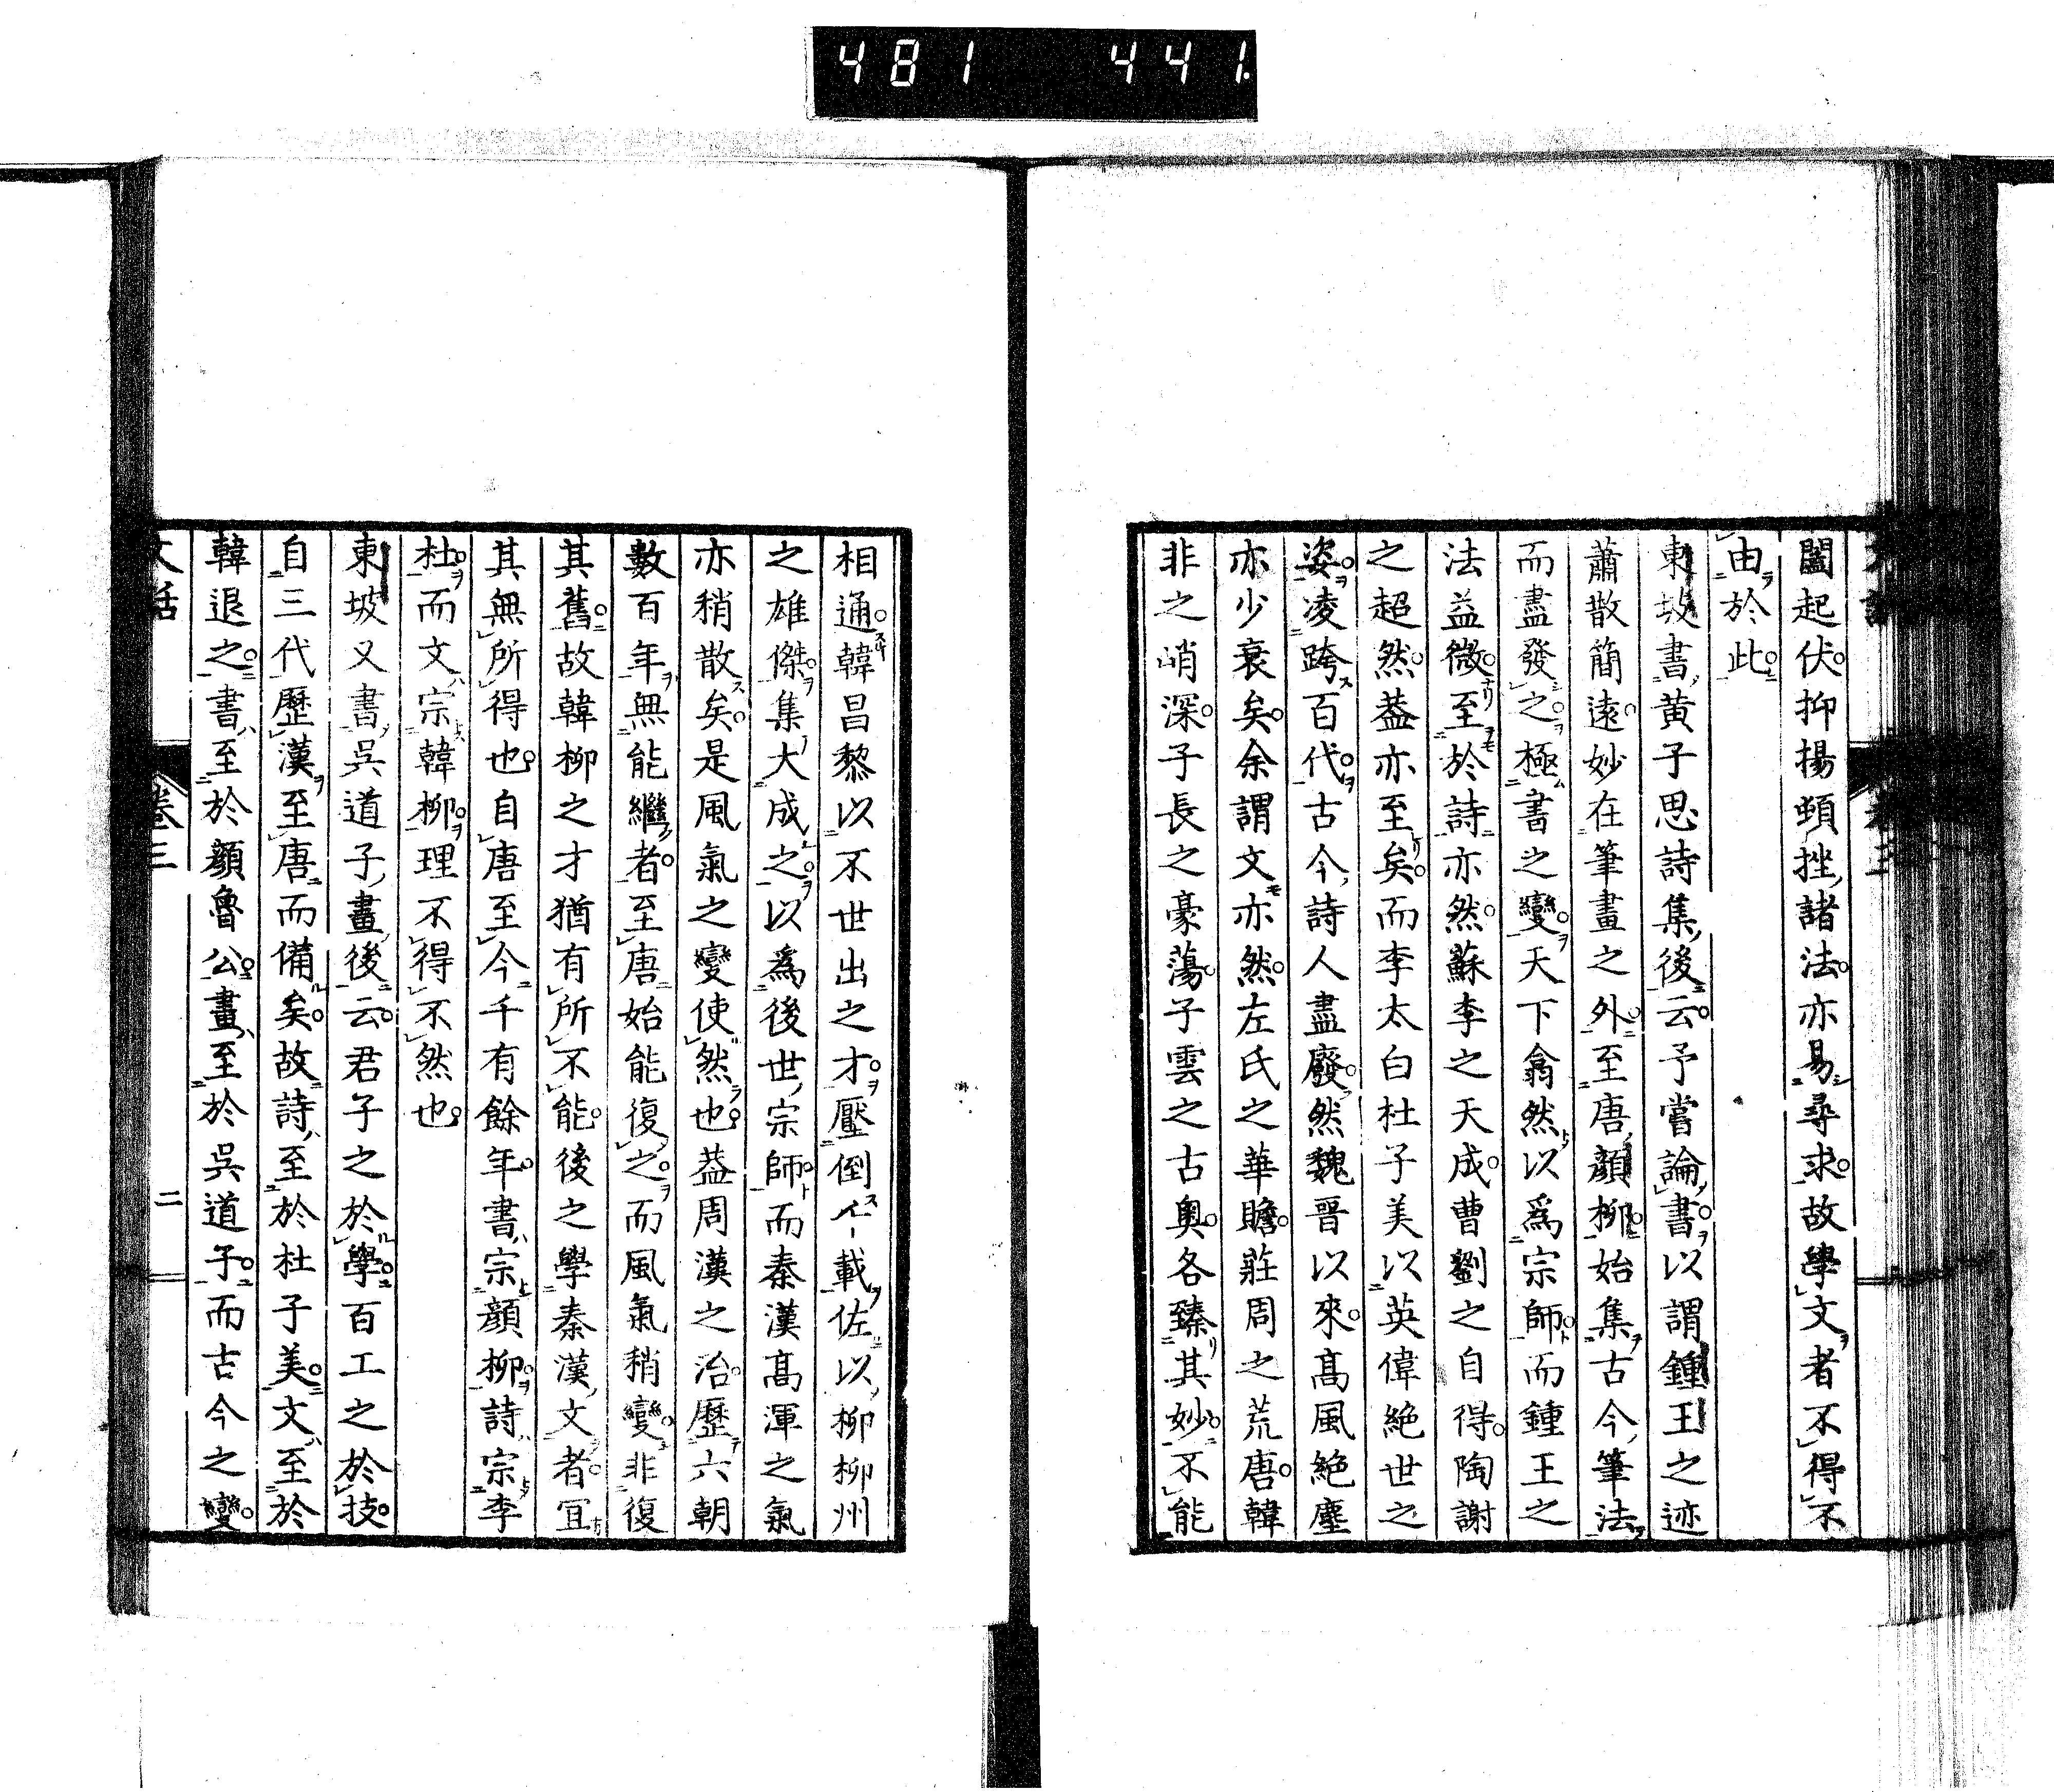 481 441.
闔起伏抑揚頓挫諸法亦易尋求故學文者不得不
由於此
東坡書黄子思詩集後云予嘗論書以謂鍾王之迹
蕭散簡遠妙在筆畫之外至唐顔柳始集古今筆法
而盡發之極書之變天下翕然以爲宗師而鍾王之
法益微至於詩亦然蘇李之天成曹劉之自得陶謝
之超然葢亦至矣而李太白杜子美以英偉絶世之
姿凌跨百代古今詩人盡廢然魏晋以來髙風絶塵
亦少衰矣余謂文亦然左氏之華贍莊周之荒唐韓
非之峭深子長之豪蕩子雲之古奥各臻其妙不能
相通韓昌黎以不世出之才壓倒千載佐以柳柳州
之雄傑集大成之以爲後世宗師而秦漢髙渾之氣
亦稍散矣是風氣之變使然也葢周漢之治歷六朝
數百年無能繼者至唐始能復之而風氣稍變非復
其舊故韓柳之才猶有所不能後之學秦漢文者冝
其無所得也自唐至今千有餘年書宗顔柳詩宗李
杜而文宗韓柳理不得不然也
東坡又書呉道子畫後云君子之於學百工之於技
自三代歷漢至唐而備矣故詩至於杜子美文至於
韓退之書至於顔魯公畫至於呉道子而古今之變
文話 卷三 二